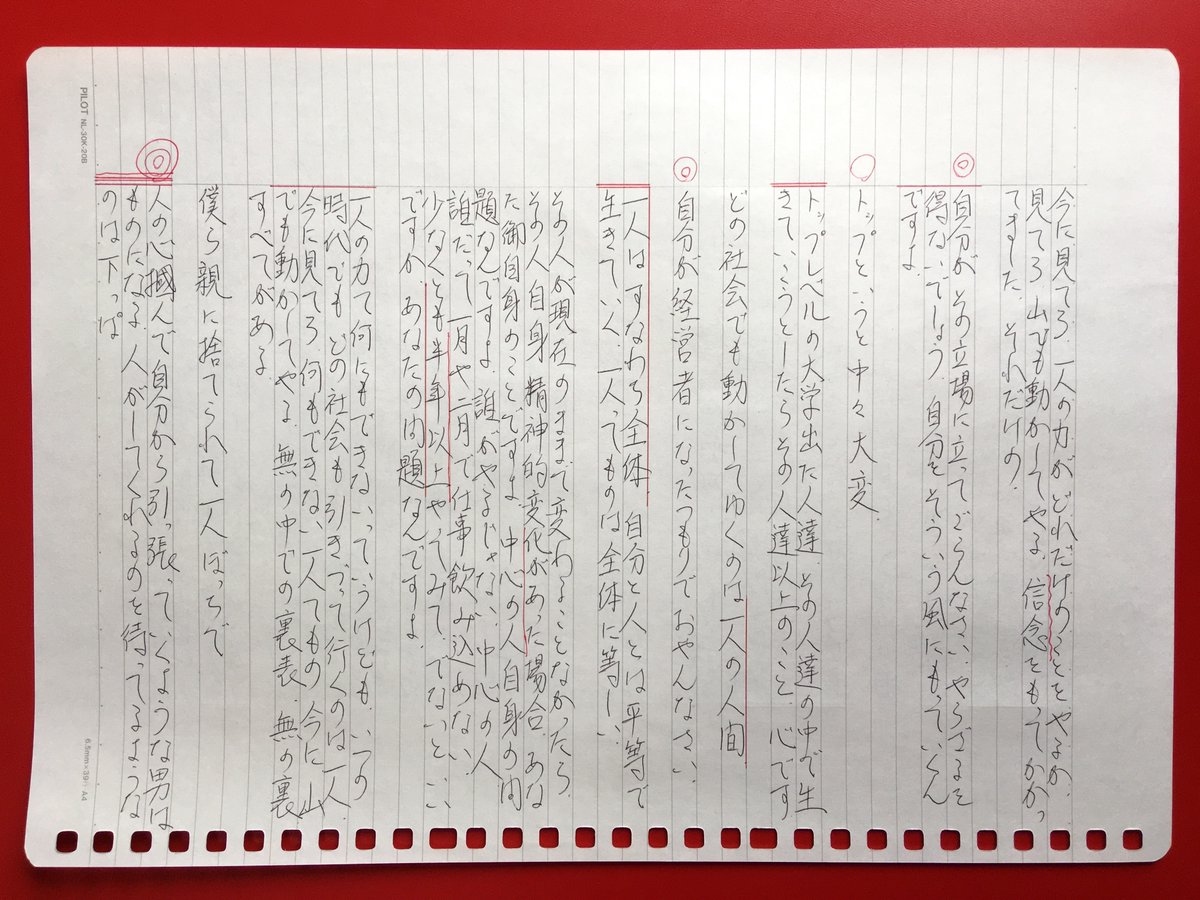 今に見てろ、一人の力がどれだけのことをやるか、
見てろ、山でも動かしてやる、信念をもってかかっ
てきました、それだけの、
自分がその立場に立ってごらんなさい、やらざるを
得ないでしょう、自分をそういう風にもっていくん
ですよ、
トップというと中々大変、
トップレベルの大学出た人達、その人達の中で生
きていこうとしたらその人達以上のこと、心です
どの社会でも動かしてゆくのは一人の人間
自分が経営者になったつもりでおやんなさい、
一人はすなわち全体、自分と人とは平等で
生きていく、一人ってものは全体に等しい、
その人が現在のままで変わることなかったら、
その人自身、精神的変化があった場合、あな
た御自身のことですよ、中心の人自身の問
題なんですよ、誰がやるじゃない、中心の人
誰だって一月や二月で仕事飲み込めない、
少なくとも半年以上やってみて、でないと、いい
ですか、あなたの問題なんですよ、
一人の力で何にもできないっていうけども、いつの
時代でも、どの社会も引きづって行くのは一人、
今に見てろ、何もできない一人でもの、今に山
でも動かしてやる、無の中での裏表、無の裏
すべてがある
僕ら親に捨てられて一人ぼっちで
人の心掴んで自分から引っ張っていくような男は
ものになる、人がしてくれるのを待ってるような
のは下っぱ
PILOT NL-30K-20B
6.5mm×39行 A4